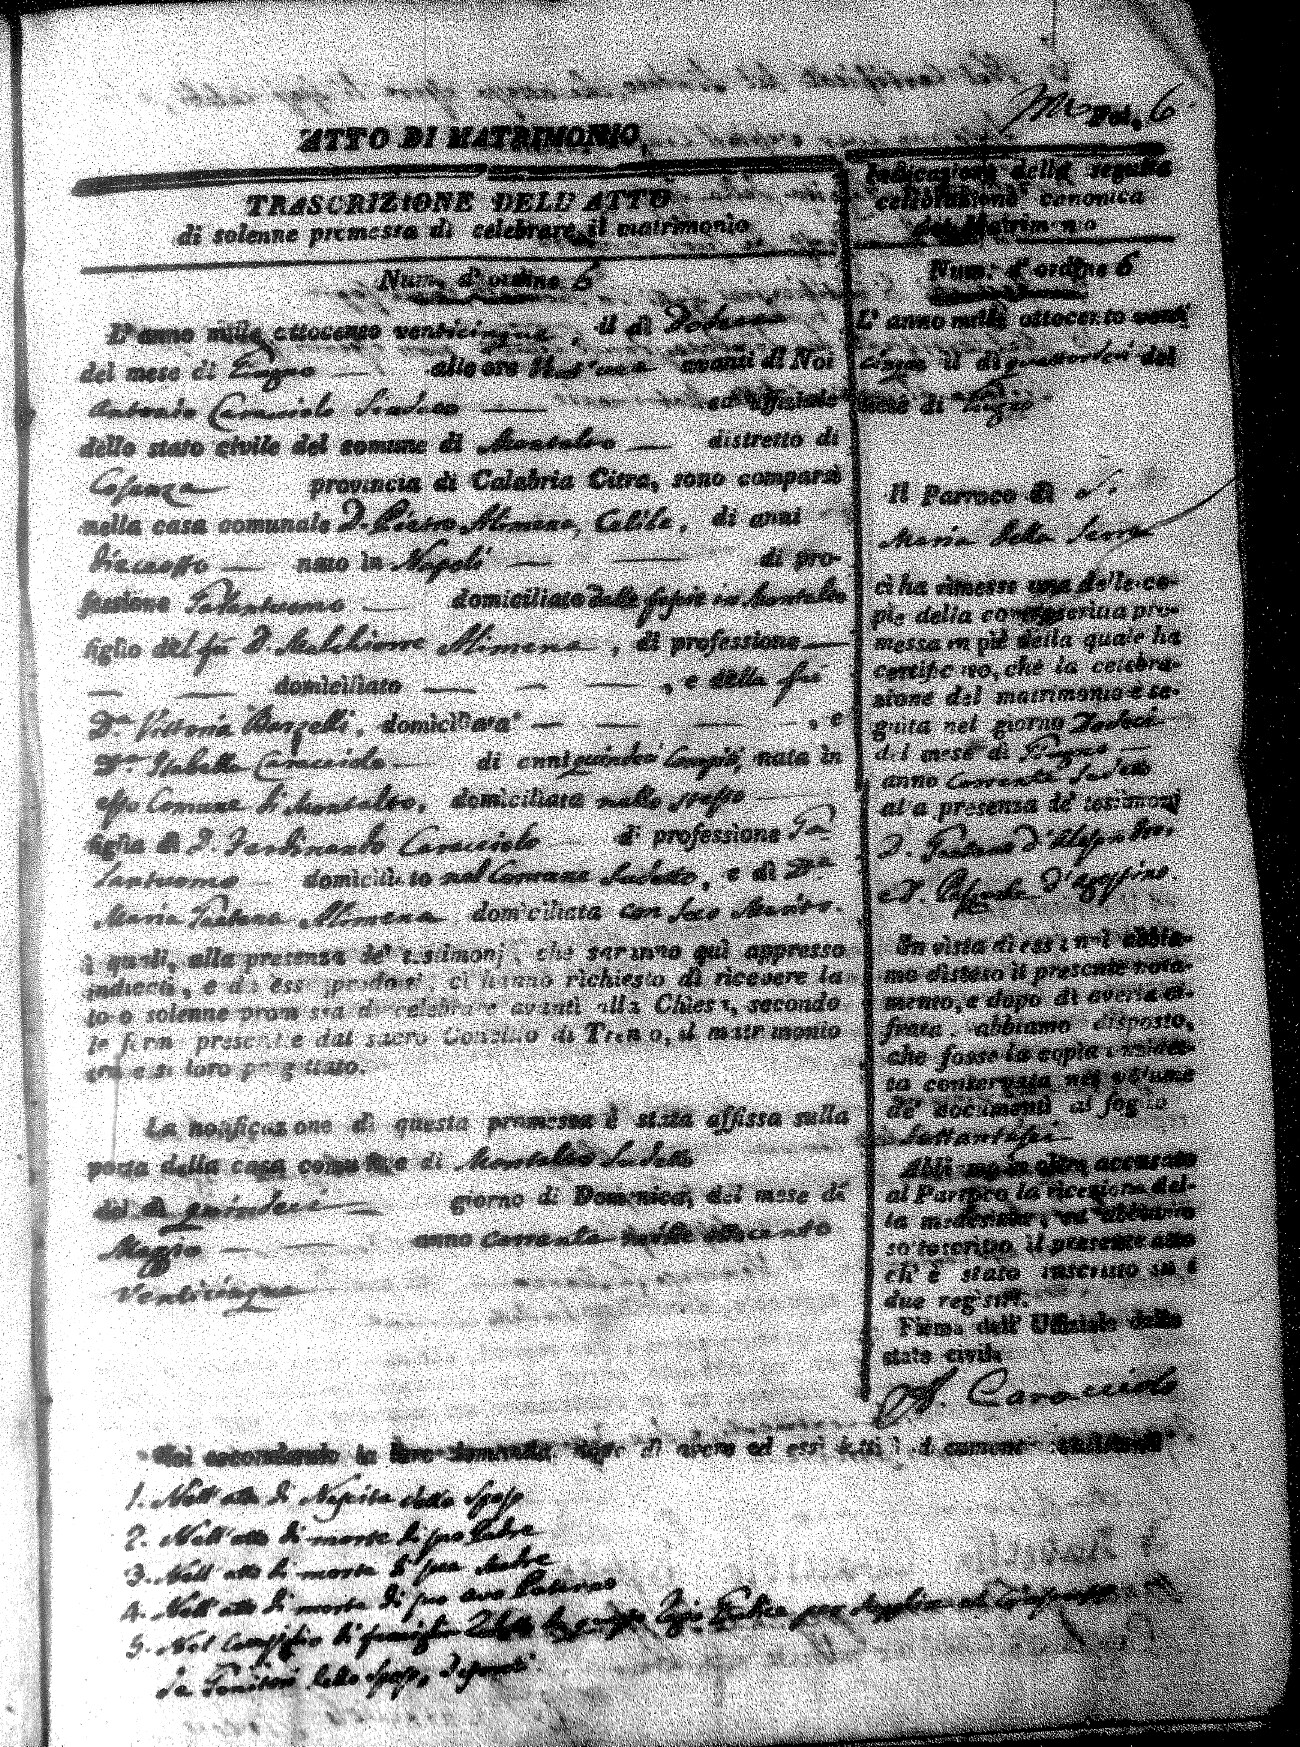 Fol. 6
ATTO DI MATRIMONIO,
TRASCRIZIONE DELL' ATTO
di solenne promessa di celebrare il matrimonio
Num. d'ordine 6
L'anno mille ottocento venticinque, il dì Dodeci
del mese di Giugno alle ore avanti di Noi
Antonio Caracciolo Sindaco ed uffiziale
dello stato civile del comune di Montalto distretto di
Cosenza provincia di Calabria Citra, sono comparsi
nella casa comunale D. Pietro Alimena, Celibe, di anni
dieciotto nato in Napoli di pro-
fessione Galantuomo domiciliato in Montalto
figlio del fu D. Melchiorre Alimena, di professione
domiciliato , e della fu
D.a Vittoria , domiciliata , e
D.a Isabella Caracciolo di anni quindeci compiti, nata in
esso Comune di Montalto, domiciliata nello stesso
figlia di D. Ferdinando Caracciolo di professione Ga
lantuomo domiciliato nel Comune sudetto, e di D.a
Maria Gaetana Alimena domiciliata con suo Marito.
i quali, alla presenza de' testimonj, che saranno quì appresso
indicati, e da essi prodotti, ci hanno richiesto di ricevere la
loro solenne promessa di celebrare avanti alla Chiesa, secondo
le forme prescritte dal sacro Concilio di Trento, il matrimonio
tra essi loro progettato.
La notificazione di questa promessa è stata affissa sulla
porta della casa comunale di Montalto sudetto
del dì quindeci giorno di Domenica, del mese di
Maggio anno corrente mille ottocento
venticinque
Indicazione della seguita
celebrazione canonica
del Matrimonio
Num. d'ordine 6
L' anno mille ottocento venti
cinque il di quattordeci del
mese di Giugno
Il Parroco di S.
Maria della Serra
ci ha rimesse una delle co-
pie della controscritta pro-
messa in piè della quale ha
certificato, che la celebra-
zione del matrimonio è se-
guita nel giorno Dodeci
del mese di Giugno
anno corrente sudetto
alla presenza de' testimonj
D. Gaetano
e D. Pasquale D'Agostino.
In vista di essa noi abbia-
mo disteso il presente nota-
mento, e dopo di averla ci-
frata, abbiamo disposto,
che fosse la copia anzidet-
ta conservata nel volume
de' documenti al foglio
settantasei
Abbiamo in oltre accusato
al Parroco la ricezione del-
la medesima, ed abbiamo
sottoscritto il presente atto
ch' è stato inscritto su i
due registri.
Firma dell' Uffiziale dello
stato civile
A. Caracciolo
Noi secondando la loro domanda, dopo di avere ad essi letti i documenti
1. Nell'atto di Nascita dello sposo
2. Nell'atto di morte di suo Padre
3. Nell'atto di morte di sua Madre
4. Nell'atto di morte di suo avo Paterno
5. Nel Consiglio di famiglia
de Genitori dello sposo,